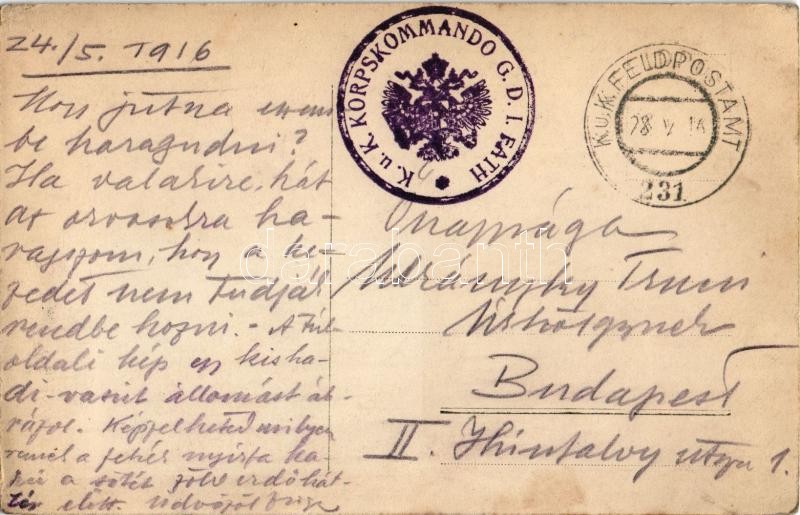 24./5. 1916
Hogy jutna eszem-
be haragudni?
Ha valakire, hát
az orvosokra ha-
ragszom, hogy a ke-
zedet nem tudják
rendbe hozni. - A túl-
oldali kép egy kis ha-
di-vasút állomást áb-
rázol. Képzelheted milyen
remek a fehér nyírfa
a sötét zöld erdő hát-
tér előtt. Üdvözöl
K. u. K. KORPSKOMMANDO G. D. I. FATH
K.u.K. FELDPOSTAMT
28 V 16
231
darabanth
Őnagysága
Trucci
Úrhölgynek
Budapest
II. utca 1.